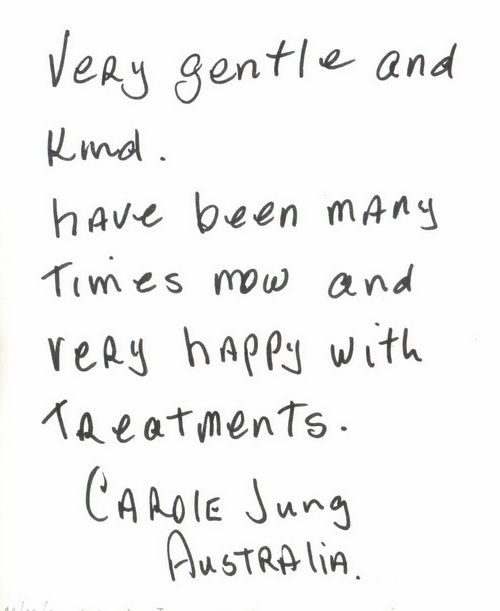 Very gentle and
Kind.
have been many
Times now and
very happy with
Treatments.
Carole Jung
Australia.